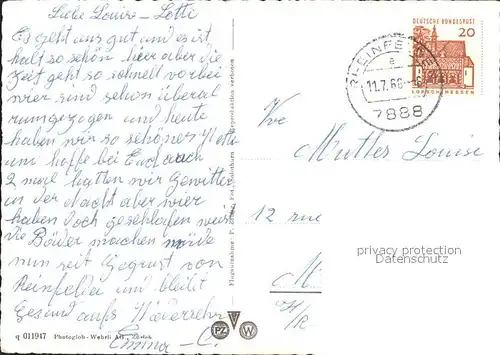 Liebe Louise - Lotti
Es geht uns gut und es ist
halt so schön hier aber die
Zeit geht so schnell vorbei
wier sind schon überal
rumgezogen und heute
haben wir so schönes
uns hoffe bei Euch auch
2 mal hatten wir Gewitter
in der Nacht aber wier
haben doch geschlafen weil
die Bäder machen müde
nun seit Gegrüst von
Reinfelden und bleibt
Gesund aufs Wiedersehn
Emma -
q 011947 Photoglob-Wehrli AG, Zürich
PZ W
DEUTSCHE BUNDESPOST
20
LORSCH/HESSEN
RHEINFELDEN
a
11.7.66
7888
Mutter Louise
12 rue
privacy protection
Datenschutz